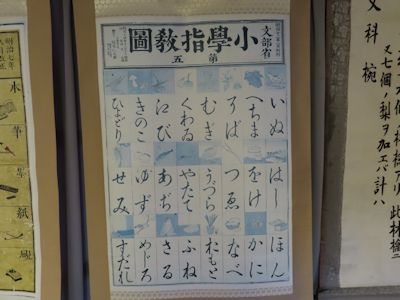 小學指教圖
文部省
第五
いぬ はし ほん
へちま をけ かに
つゑ なべ
むぎ うづら たもと
くわゐ やたて ふね
えび あぢ さる
きのこ ゆず めじろ
ひよどり せみ すだれ
明治七年
筆
紙
又七個ノ梨ヲ加エバ計ハ